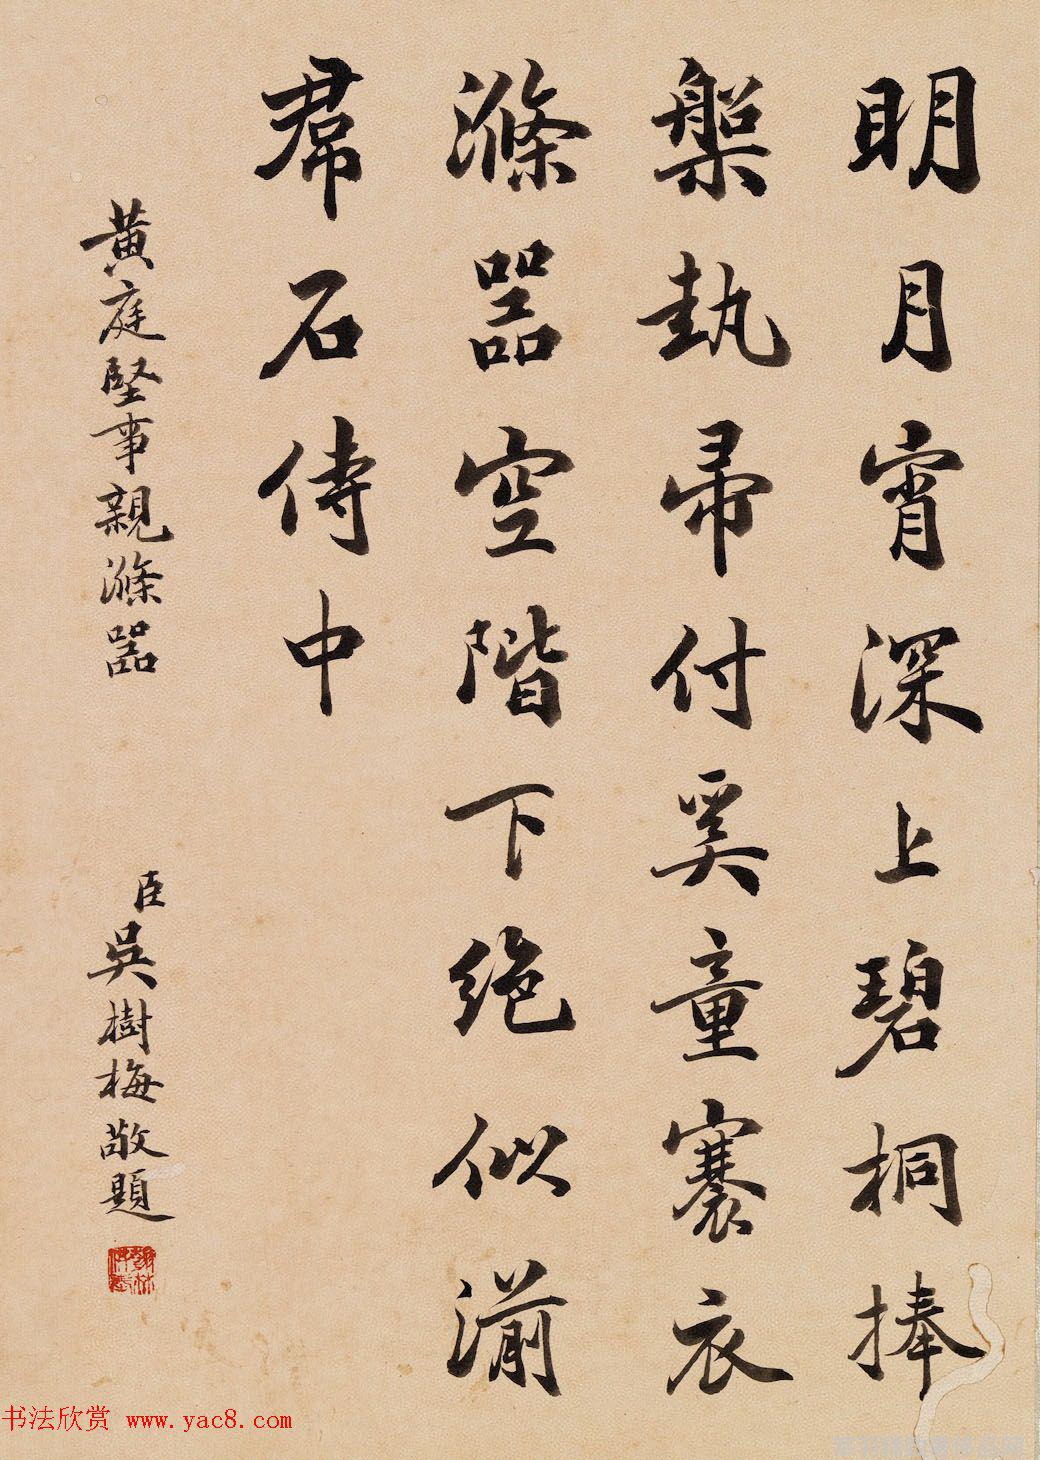 明月宵深上碧桐捧
槃執帚付奚童褰衣
滌器空階下絶似湔
帬石侍中
黃庭堅事親滌器
臣吳樹梅敬題
书法欣赏 www.yac8.com